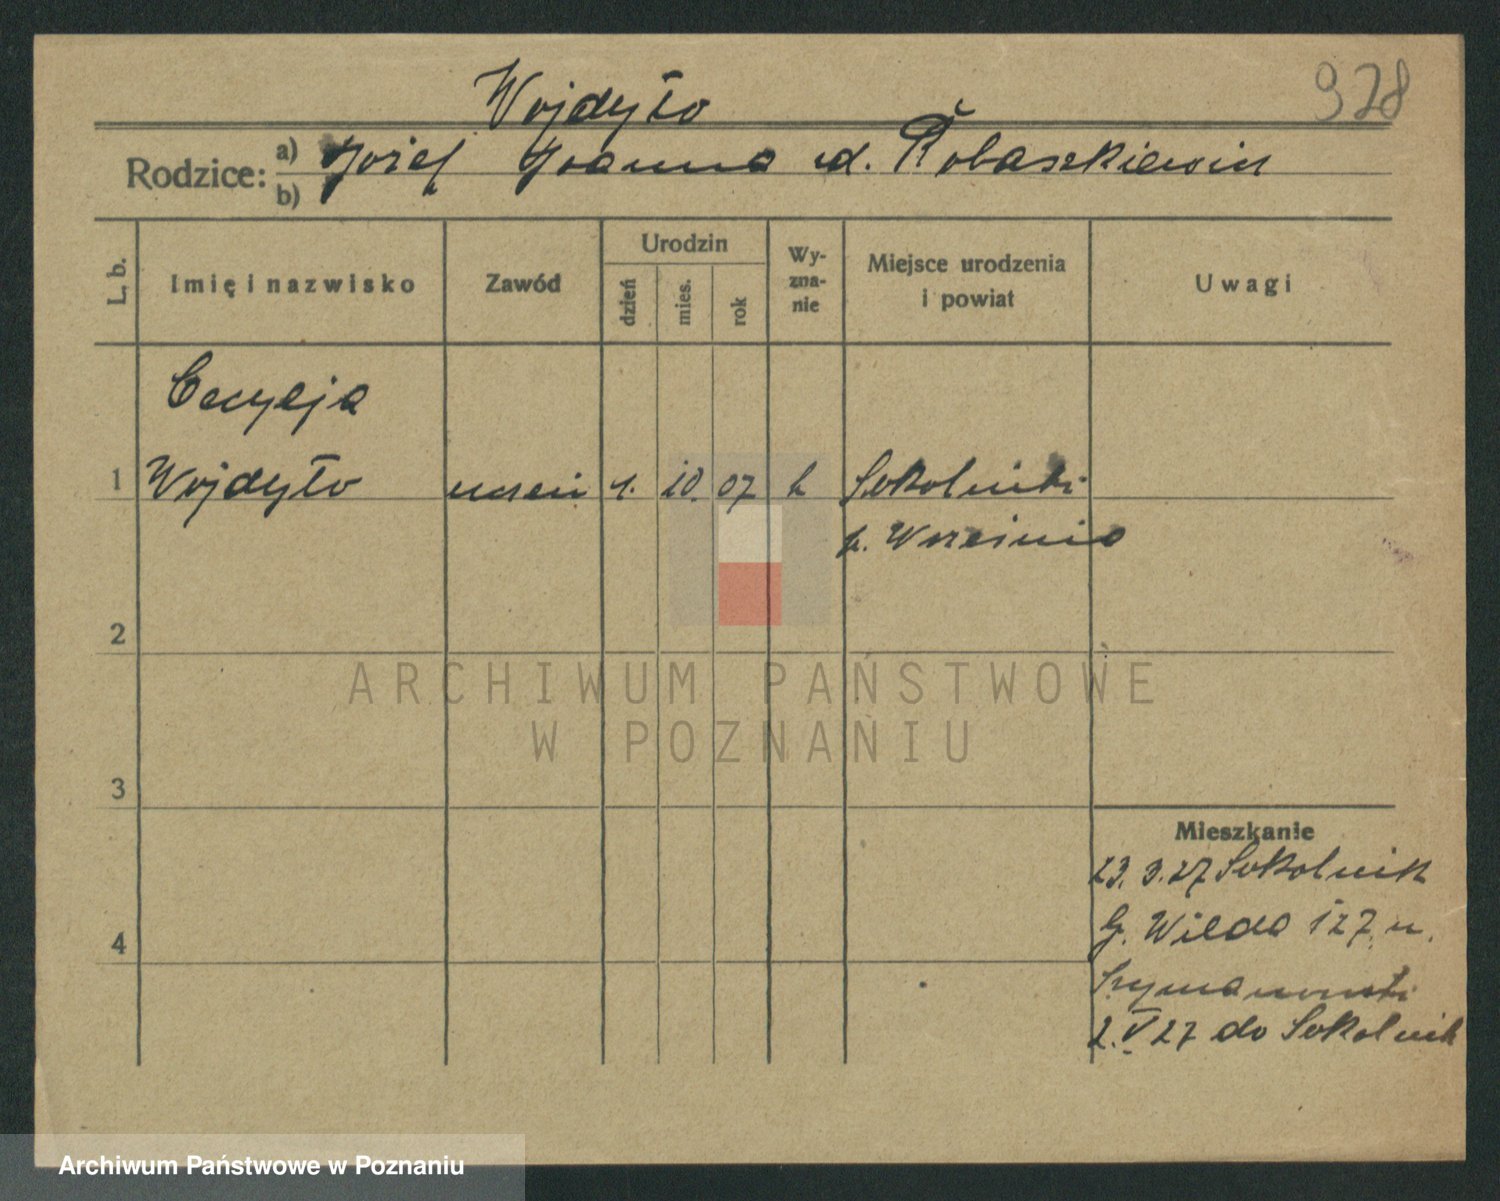 978
Wojdyło
Rodzice: a) Józef Joanna ud.
b)
L. b.
Imię i nazwisko
Zawód
Urodzin
dzień
mies.
rok
Wy-
zna-
nie
Miejsce urodzenia
i powiat
Uwagi
Cecylja
1 Wojdyło uczeń 1. 10. 07 k Sokolniki
p. Września
2
3
4
Mieszkanie
23. 3. 27 Sokolnik
G. Wilda 127 u.
Szymanowski
2. V 27 do Sokolnik
ARCHIWUM PAŃSTWOWE
W POZNANIU
Archiwum Państwowe w Poznaniu